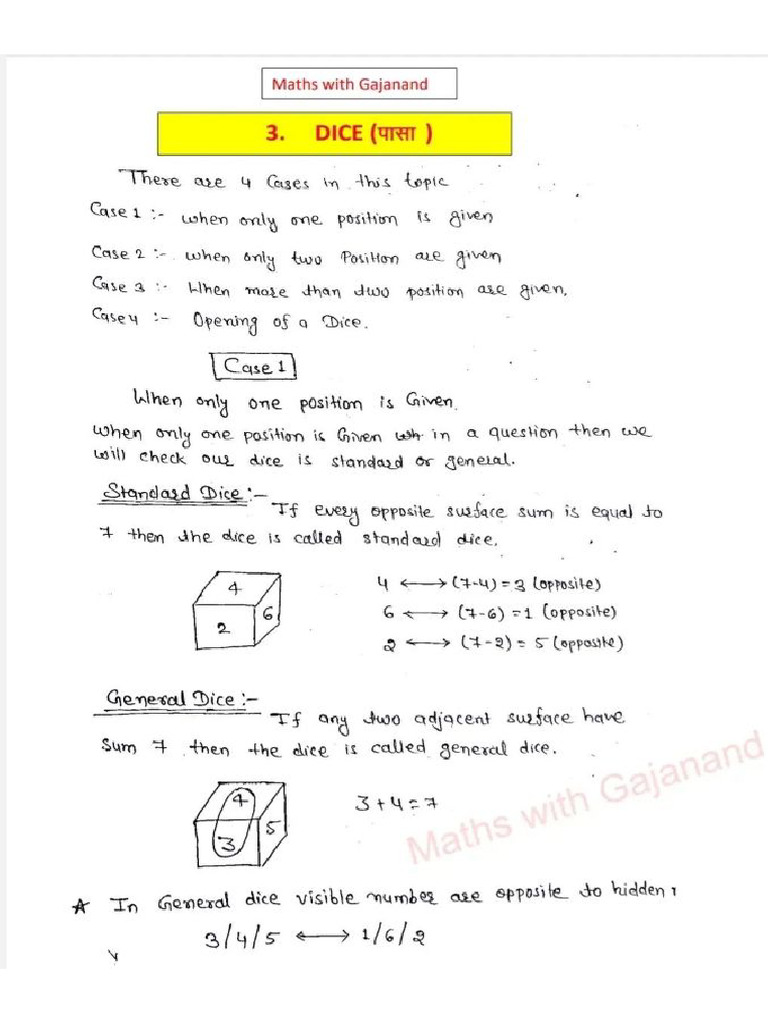 Maths with Gajanand
3. DICE (पासा )
There are 4 Cases in this topic
Case 1 :- when only one position is given
Case 2 :- when only two Position are given
Case 3 :- When more than two position are given.
Case 4 :- Opening of a Dice.
Case 1
When only one position is Given.
when only one position is Given wh in a question then we
will check our dice is standard or general.
Standard Dice :-
If every opposite surface sum is equal to
7 then the dice is called standard dice.
4 6 2
4 ⟷ (7-4) = 3 (opposite)
6 ⟷ (7-6) = 1 (opposite)
2 ⟷ (7-2) = 5 (opposite)
General Dice :-
If any two adjacent surface have
sum 7 then the dice is called general dice.
4 5 3
3+4=7
Maths with Gajanand
☆ In General dice visible number are opposite to hidden
3/4/5 ⟷ 1/6/2